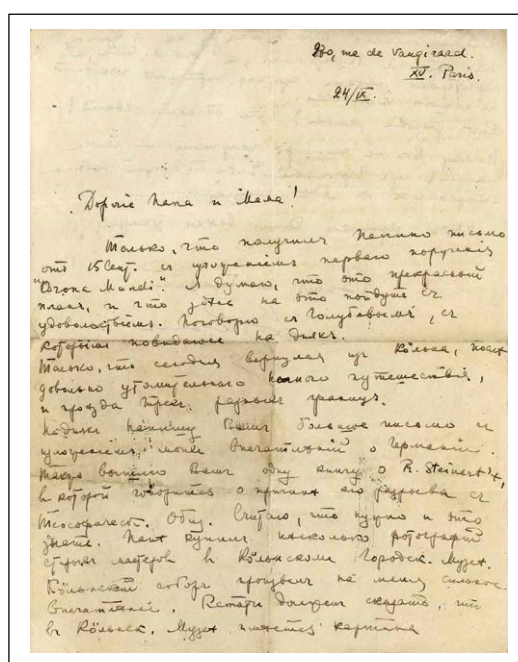 230, rue de Vaugirard.
XV. Paris.
24/IX.
Дорогие Папа и Мама!
Только, что получилъ Папино письмо
отъ 15 Сент. съ изложеніемъ перваго порученія
"Corona Mundi". Я думаю, что это прекрасный
планъ, и что здесь на это пойдутъ съ
удовольствіемъ. Поговорю съ Голубевымъ, съ
которымъ повидаюсь на дняхъ.
Только, что сегодня вернулся изъ Кёльна, после
довольно утомительнаго ночного путешествія,
и проезда трехъ разныхъ границъ.
На дняхъ напишу Вамъ большое письмо съ
изложеніемъ моихъ впечатленій о Германіи.
Также вышлю Вамъ одну книгу о R. Steiner'ѣ,
въ которой говорится о причинахъ его разрыва съ
Теософическ. Общ. Считаю, что нужно и это
знать. Папѣ купилъ несколько фотографій
старыхъ мастеровъ въ Кёльнскомъ Городск. Музеѣ.
Кёльнскій соборъ произвелъ на меня сильное
впечатленіе. Кстати долженъ сказать, что
въ Кёльнск. Музеѣ имеется картина